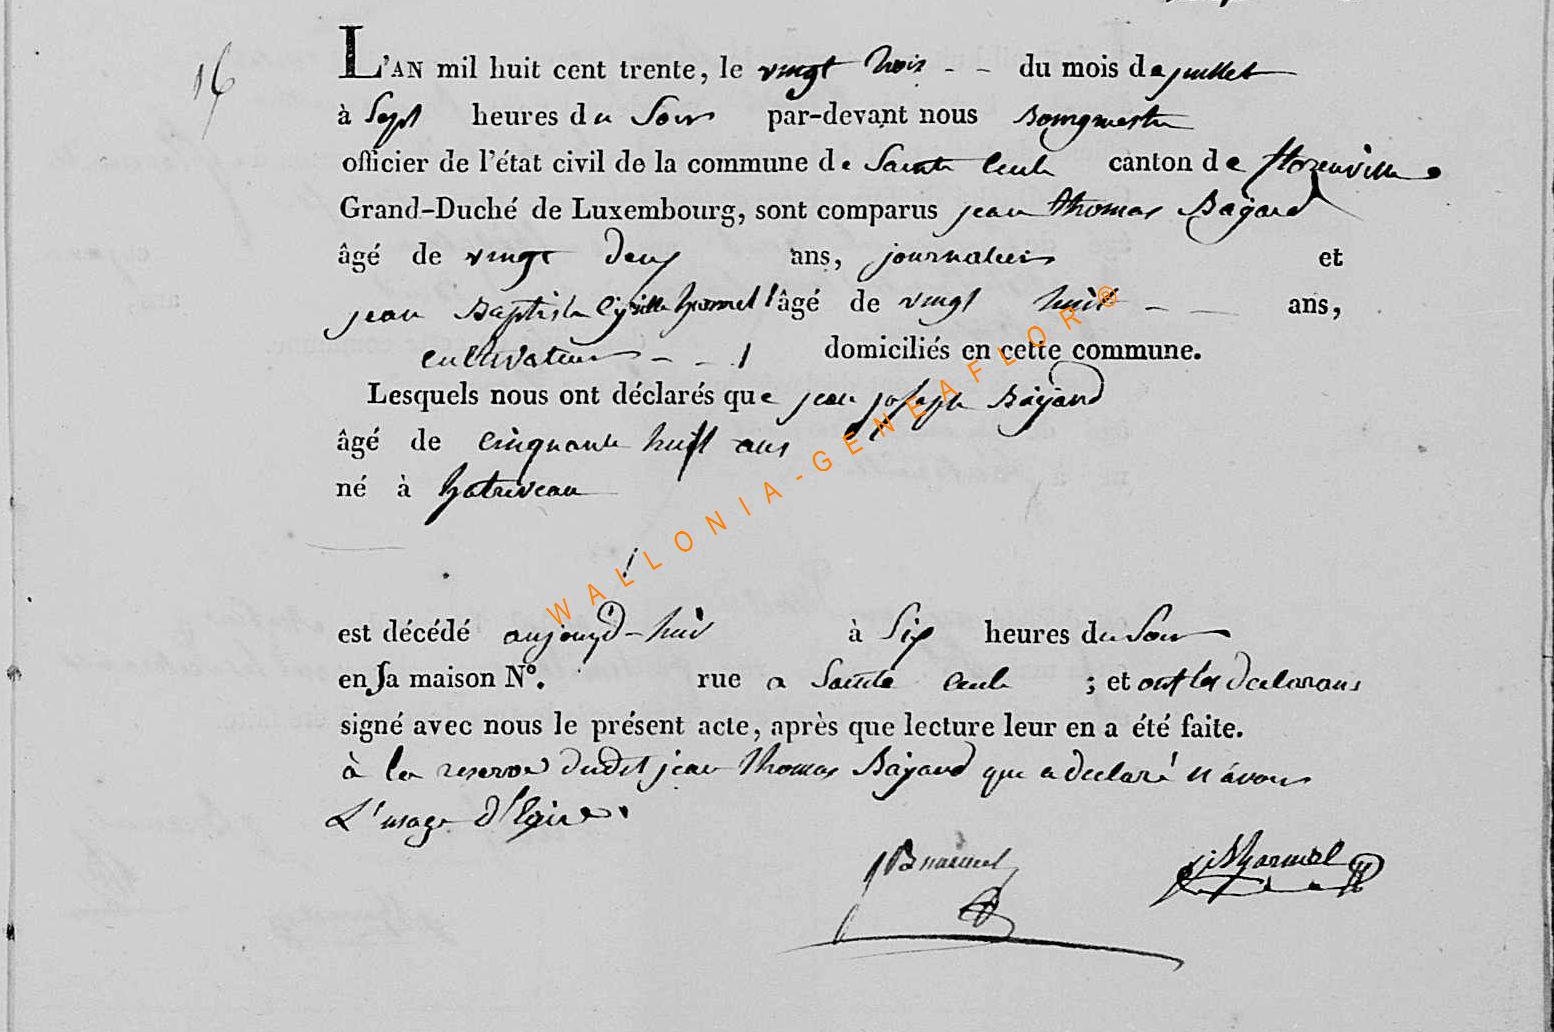 16
L'AN mil huit cent trente, le vingt trois - - du mois de juillet
à Sept heures du Soir par-devant nous Bourgmestre
officier de l'état civil de la commune de Sainte Cecile canton de florenville
Grand-Duché de Luxembourg, sont comparus jean thomas Bajard
âgé de vingt deux ans, journalier et
jean Baptiste hamel âgé de vingt huit - - ans,
cultivateur - - domiciliés en cette commune.
Lesquels nous ont déclarés que jean joseph Bajard
âgé de cinquante huit ans
né à hatriveau
est décédé aujourd-hui à Six heures du Soir
en Sa maison N°. rue a Sainte Cecile ; et ont les declarans
signé avec nous le présent acte, après que lecture leur en a été faite.
à la reserve dudit jean thomas Bajard qui a declaré n'avoir
L'usage d'Ecrire.
WALLONIA-GENEAFLOR®